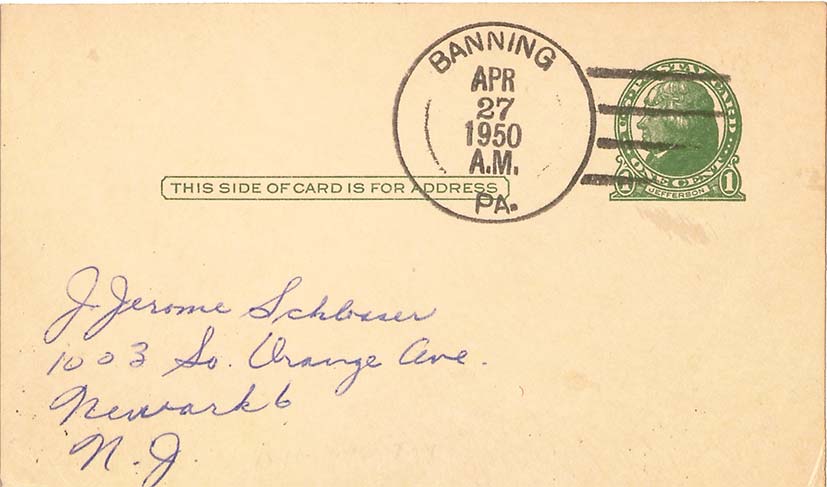 BANNING
APR
27
1950
A.M.
PA.
U.S. POSTAL CARD
ONE CENT
1 1
JEFFERSON
THIS SIDE OF CARD IS FOR ADDRESS
J. Jerome Schlosser
1003 So. Orange Ave.
Newark 6
N. J.